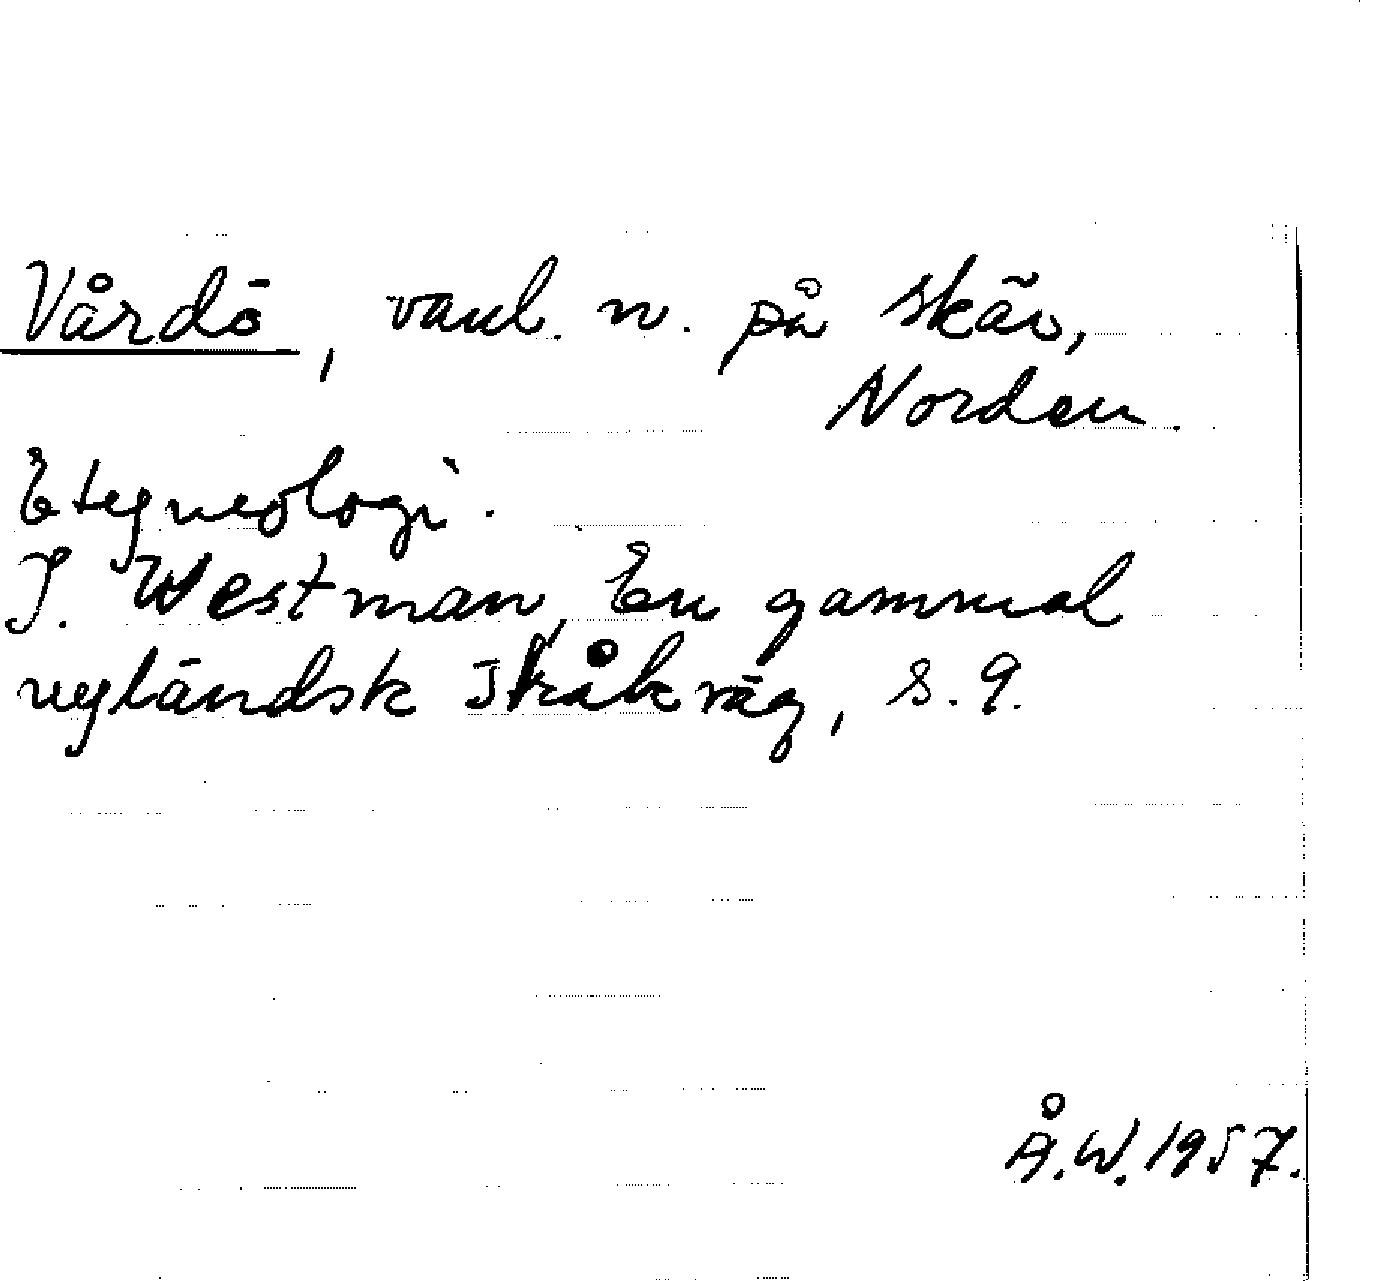 Vårdö, vanl. n. på skär,
Norden.
Etymologi.
J. Westman, En gammal
nyländsk stråkväg, s. 9.
Å.W. 1957.